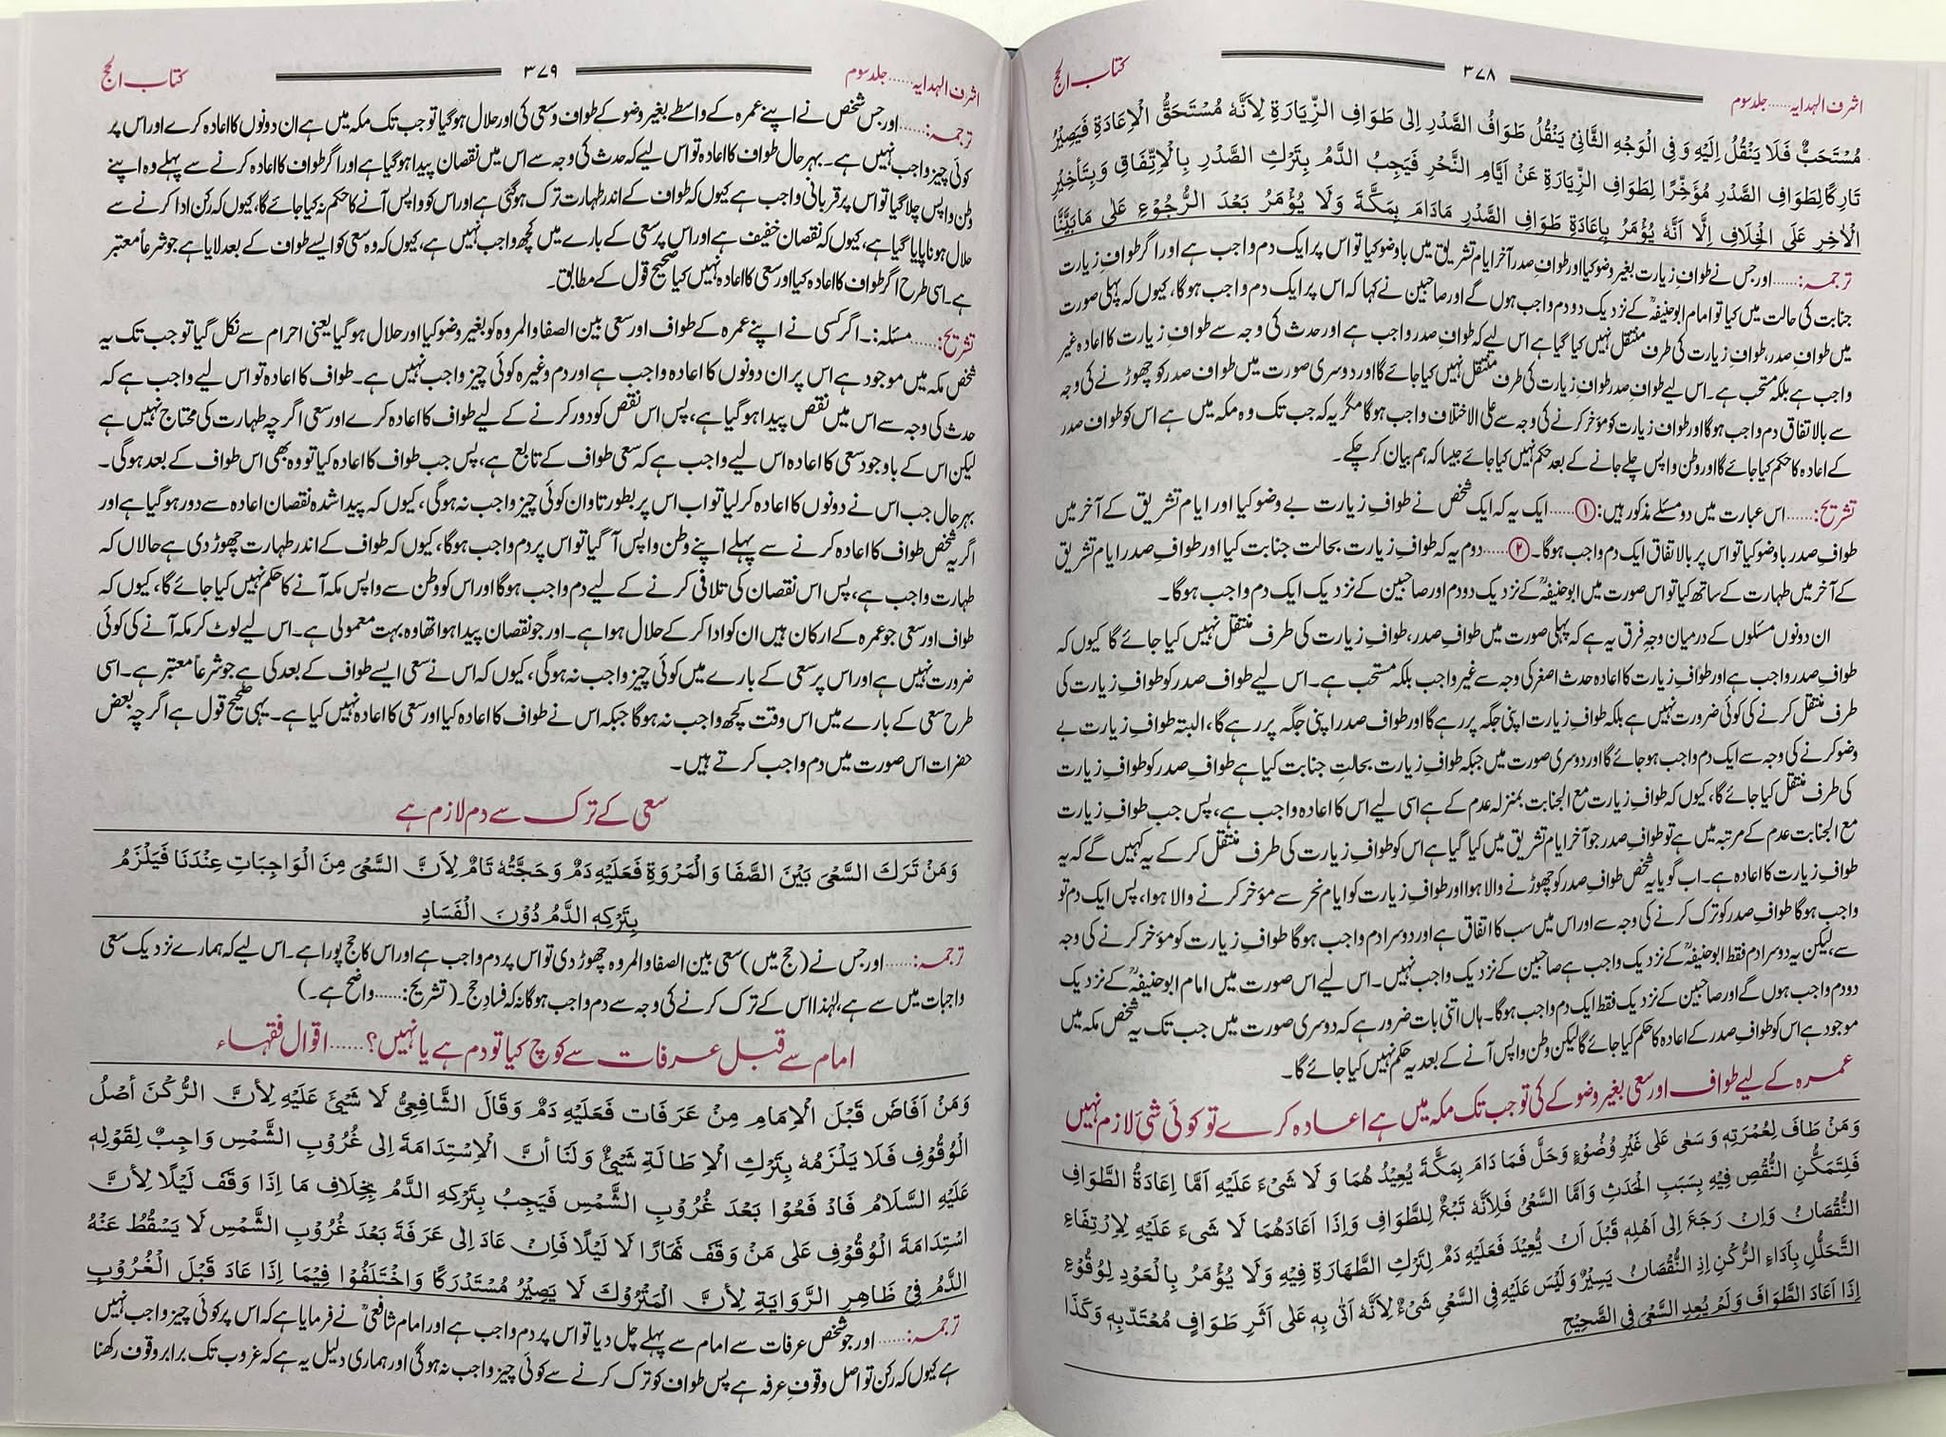 اشرف الہدایہ……جلد سوم ۳۷۸ کتاب الحج
مُسْتَحَبٌّ فَلَا يَنْقُلُ إِلَيْهِ وَفِي الْوَجْهِ الثَّانِيْ يَنْقُلُ طَوَافُ الصَّدْرِ اِلٰى طَوَافِ الزِّيَارَةِ لِاَنَّهُ مُسْتَحَقُّ الْاِعَادَةِ فَيَصِيْرُ
تَارِكًا لِطَوَافِ الصَّدْرِ مُؤَخِّرًا لِطَوَافِ الزِّيَارَةِ عَنْ اَيَّامِ النَّحْرِ فَيَجِبُ الدَّمُ بِتَرْكِ الصَّدْرِ بِالْاِتِّفَاقِ وَبِتَأْخِيْرِ
الْاٰخِرِ عَلَى الْخِلَافِ اِلَّا اَنَّهُ يُؤْمَرُ بِاِعَادَةِ طَوَافِ الصَّدْرِ مَادَامَ بِمَكَّةَ وَلَا يُؤْمَرُ بَعْدَ الرُّجُوْعِ عَلٰى مَا بَيَّنَّا
ترجمہ:……اور جس نے طوافِ زیارت بغیر وضو کیا اور طوافِ صدر آخر ایام تشریق میں باوضو کیا تو اس پر ایک دم واجب ہے اور اگر طوافِ زیارت
جنابت کی حالت میں کیا تو امام ابوحنیفہؒ کے نزدیک دو دم واجب ہوں گے اور صاحبین نے کہا کہ اس پر ایک دم واجب ہوگا، کیوں کہ پہلی صورت
میں طوافِ صدر، طوافِ زیارت کی طرف منتقل نہیں کیا گیا ہے اس لیے کہ طوافِ صدر واجب ہے اور حدث کی وجہ سے طوافِ زیارت کا اعادہ غیر
واجب ہے بلکہ مستحب ہے۔ اس لیے طوافِ صدر طوافِ زیارت کی طرف منتقل نہیں کیا جائے گا اور دوسری صورت میں طواف صدر کو چھوڑنے کی وجہ
سے بالاتفاق دم واجب ہوگا اور طواف زیارت کو مؤخر کرنے کی وجہ سے علی الاختلاف واجب ہوگا مگر یہ کہ جب تک وہ مکہ میں ہے اس کو طواف صدر
کے اعادہ کا حکم کیا جائے گا اور وطن واپس چلے جانے کے بعد حکم نہیں کیا جائے جیسا کہ ہم بیان کر چکے۔
تشریح:……اس عبارت میں دو مسئلے مذکور ہیں: ①……ایک یہ کہ ایک شخص نے طوافِ زیارت بے وضو کیا اور ایام تشریق کے آخر میں
طوافِ صدر باوضو کیا تو اس پر بالاتفاق ایک دم واجب ہوگا۔ ②……دوم یہ کہ طوافِ زیارت بحالت جنابت کیا اور طوافِ صدر ایام تشریق
کے آخر میں طہارت کے ساتھ کیا تو اس صورت میں ابوحنیفہؒ کے نزدیک دو دم اور صاحبین کے نزدیک ایک دم واجب ہوگا۔
ان دونوں مسئلوں کے درمیان وجہ فرق یہ ہے کہ پہلی صورت میں طوافِ صدر، طوافِ زیارت کی طرف منتقل نہیں کیا جائے گا کیوں کہ
طوافِ صدر واجب ہے اور طوافِ زیارت کا اعادہ حدث اصغر کی وجہ سے غیر واجب بلکہ مستحب ہے۔ اس لیے طواف صدر کو طوافِ زیارت کی
طرف منتقل کرنے کی کوئی ضرورت نہیں ہے بلکہ طوافِ زیارت اپنی جگہ پر رہے گا اور طواف صدر اپنی جگہ پر رہے گا، البتہ طوافِ زیارت بے
وضو کرنے کی وجہ سے ایک دم واجب ہو جائے گا اور دوسری صورت میں جبکہ طوافِ زیارت بحالتِ جنابت کیا ہے طوافِ صدر کو طوافِ زیارت
کی طرف منتقل کیا جائے گا، کیوں کہ طوافِ زیارت مع الجنابت بمنزلہ عدم کے ہے اسی لیے اس کا اعادہ واجب ہے، پس جب طوافِ زیارت
مع الجنابت عدم کے مرتبہ میں ہے تو طوافِ صدر جو آخر ایام تشریق میں کیا گیا ہے اس کو طوافِ زیارت کی طرف منتقل کر کے یہ کہیں گے کہ یہ
طوافِ زیارت کا اعادہ ہے۔ اب گویا یہ شخص طواف صدر کو چھوڑنے والا ہوا اور طوافِ زیارت کو ایام نحر سے مؤخر کرنے والا ہوا، پس ایک دم تو
واجب ہوگا طوافِ صدر کو ترک کرنے کی وجہ سے اور اس میں سب کا اتفاق ہے اور دوسرا دم واجب ہوگا طوافِ زیارت کو مؤخر کرنے کی وجہ
سے، لیکن یہ دوسرا دم فقط ابوحنیفہؒ کے نزدیک واجب ہے صاحبین کے نزدیک واجب نہیں۔ اس لیے اس صورت میں امام ابوحنیفہؒ کے نزدیک
دو دم واجب ہوں گے اور صاحبین کے نزدیک فقط ایک دم واجب ہوگا۔ ہاں اتنی بات ضرور ہے کہ دوسری صورت میں جب تک یہ شخص مکہ میں
موجود ہے اس کو طوافِ صدر کے اعادہ کا حکم کیا جائے گا لیکن وطن واپس آنے کے بعد یہ حکم نہیں کیا جائے گا۔
عمرہ کے لیے طواف اور سعی بغیر وضو کے کی تو جب تک مکہ میں ہے اعادہ کرے تو کوئی شئی لازم نہیں
وَمَنْ طَافَ لِعُمْرَتِهٖ وَسَعٰى عَلٰى غَيْرِ وُضُوْءٍ وَحَلَّ فَمَا دَامَ بِمَكَّةَ يُعِيْدُ هُمَا وَ لَا شَىْءَ عَلَيْهِ اَمَّا اِعَادَةُ الطَّوَافِ
فَلِتَمَكُّنِ النَّقْصِ فِيْهِ بِسَبَبِ الْحَدَثِ وَاَمَّا السَّعْىُ فَلِاَنَّهُ تَبْعٌ لِلطَّوَافِ وَاِذَا اَعَادَهُمَا لَا شَىْءَ عَلَيْهِ لِاِرْتِفَاعِ
النُّقْصَانِ وَاِنْ رَجَعَ اِلٰى اَهْلِهٖ قَبْلَ اَنْ يُّعِيْدَ فَعَلَيْهِ دَمٌ لِتَرْكِ الطَّهَارَةِ فِيْهِ وَلَا يُؤْمَرُ بِالْعَوْدِ لِوُقُوْعِ
التَّحَلُّلِ بِاَدَاءِ الرُّكْنِ اِذِ النُّقْصَانُ يَسِيْرٌ وَلَيْسَ عَلَيْهِ فِى السَّعْىِ شَىْءٌ لِاَنَّهُ اَتٰى بِهٖ عَلٰى اَثَرِ طَوَافٍ مُعْتَدٍّ بِهٖ وَكَذَا
اِذَا اَعَادَ الطَّوَافَ وَلَمْ يُعِدِ السَّعْىَ فِى الصَّحِيْحِ
اشرف الہدایہ……جلد سوم ۳۷۹ کتاب الحج
ترجمہ:……اور جس شخص نے اپنے عمرہ کے واسطے بغیر وضو کے طواف وسعی کی اور حلال ہو گیا تو جب تک مکہ میں ہے ان دونوں کا اعادہ کرے اور اس پر
کوئی چیز واجب نہیں ہے۔ بہرحال طواف کا اعادہ تو اس لیے کہ حدث کی وجہ سے اس میں نقصان پیدا ہو گیا ہے اور اگر طواف کا اعادہ کرنے سے پہلے وہ اپنے
وطن واپس چلا گیا تو اس پر قربانی واجب ہے کیوں کہ طواف کے اندر طہارت ترک ہوگئی ہے اور اس کو واپس آنے کا حکم نہ کیا جائے گا، کیوں کہ رکن ادا کرنے سے
حلال ہونا پایا گیا ہے، کیوں کہ نقصان خفیف ہے اور اس پر سعی کے بارے میں کچھ واجب نہیں ہے، کیوں کہ وہ سعی کو ایسے طواف کے بعد لایا ہے جو شرعاً معتبر
ہے۔ اسی طرح اگر طواف کا اعادہ کیا اور سعی کا اعادہ نہیں کیا صحیح قول کے مطابق۔
تشریح:……مسئلہ:۔ اگر کسی نے اپنے عمرہ کے طواف اور سعی بین الصفا والمروہ کو بغیر وضو کیا اور حلال ہو گیا یعنی احرام سے نکل گیا تو جب تک یہ
شخص مکہ میں موجود ہے اس پر ان دونوں کا اعادہ واجب ہے اور دم وغیرہ کوئی چیز واجب نہیں ہے۔ طواف کا اعادہ تو اس لیے واجب ہے کہ
حدث کی وجہ سے اس میں نقص پیدا ہو گیا ہے، پس اس نقص کو دور کرنے کے لیے طواف کا اعادہ کرے اور سعی اگرچہ طہارت کی محتاج نہیں ہے
لیکن اس کے باوجود سعی کا اعادہ اس لیے واجب ہے کہ سعی طواف کے تابع ہے، پس جب طواف کا اعادہ کیا تو وہ بھی اس طواف کے بعد ہوگی۔
بہرحال جب اس نے دونوں کا اعادہ کر لیا تو اب اس پر بطور تاوان کوئی چیز واجب نہ ہوگی، کیوں کہ پیدا شدہ نقصان اعادہ سے دور ہو گیا ہے اور
اگر یہ شخص طواف کا اعادہ کرنے سے پہلے اپنے وطن واپس آ گیا تو اس پر دم واجب ہوگا، کیوں کہ طواف کے اندر طہارت چھوڑ دی ہے حالاں کہ
طہارت واجب ہے، پس اس نقصان کی تلافی کرنے کے لیے دم واجب ہوگا اور اس کو وطن سے واپس مکہ آنے کا حکم نہیں کیا جائے گا، کیوں کہ
طواف اور سعی جو عمرہ کے ارکان ہیں ان کو ادا کر کے حلال ہوا ہے۔ اور جو نقصان پیدا ہوا تھا وہ بہت معمولی ہے۔ اس لیے لوٹ کر مکہ آنے کی کوئی
ضرورت نہیں ہے اور اس پر سعی کے بارے میں کوئی چیز واجب نہ ہوگی، کیوں کہ اس نے سعی ایسے طواف کے بعد کی ہے جو شرعاً معتبر ہے۔ اسی
طرح سعی کے بارے میں اس وقت کچھ واجب نہ ہوگا جبکہ اس نے طواف کا اعادہ کیا اور سعی کا اعادہ نہیں کیا ہے۔ یہی صحیح قول ہے اگرچہ بعض
حضرات اس صورت میں دم واجب کرتے ہیں۔
سعی کے ترک سے دم لازم ہے
وَمَنْ تَرَكَ السَّعْىَ بَيْنَ الصَّفَا وَالْمَرْوَةِ فَعَلَيْهِ دَمٌ وَحَجَّتُهُ تَامٌ لِاَنَّ السَّعْىَ مِنَ الْوَاجِبَاتِ عِنْدَنَا فَيَلْزَمُ
بِتَرْكِهِ الدَّمُ دُوْنَ الْفَسَادِ
ترجمہ:……اور جس نے (حج میں) سعی بین الصفا والمروہ چھوڑ دی تو اس پر دم واجب ہے اور اس کا حج پورا ہے۔ اس لیے کہ ہمارے نزدیک سعی
واجبات میں سے ہے، لہٰذا اس کے ترک کرنے کی وجہ سے دم واجب ہوگا نہ کہ فسادِ حج۔ (تشریح:……واضح ہے۔)
امام سے قبل عرفات سے کوچ کیا تو دم ہے یا نہیں؟……اقوال فقہاء
وَمَنْ اَفَاضَ قَبْلَ الْاِمَامِ مِنْ عَرَفَات فَعَلَيْهِ دَمٌ وَقَالَ الشَّافِعِىُّ لَا شَيْئَ عَلَيْهِ لِأَنَّ الرُّكْنَ أَصْلُ
الْوُقُوْفِ فَلَا يَلْزَمُهُ بِتَرْكِ الْاِطَالَةِ شَيْئٌ وَلَنَا أَنَّ الْاِسْتِدَامَةَ اِلٰى غُرُوْبِ الشَّمْسِ وَاجِبٌ لِقَوْلِهٖ
عَلَيْهِ السَّلَامُ فَادْ فَعُوْا بَعْدَ غُرُوْبِ الشَّمْسِ فَيَجِبُ بِتَرْكِهِ الدَّمُ بِخِلَافِ مَا اِذَا وَقَفَ لَيْلًا لِأَنَّ
اسْتِدَامَةَ الْوُقُوْفِ عَلٰى مَنْ وَقَفَ نَهَارًا لَا لَيْلًا فَاِنْ عَادَ اِلٰى عَرَفَةَ بَعْدَ غُرُوْبِ الشَّمْسِ لَا يَسْقُطُ عَنْهُ
الدَّمُ فِىْ ظَاهِرِ الرِّوَايَةِ لِأَنَّ الْمَتْرُوْكَ لَا يَصِيْرُ مُسْتَدْرَكًا وَاخْتَلَفُوْا فِيْمَا اِذَا عَادَ قَبْلَ الْغُرُوْبِ
ترجمہ:……اور جو شخص عرفات سے امام سے پہلے چل دیا تو اس پر دم واجب ہے اور امام شافعیؒ نے فرمایا ہے کہ اس پر کوئی چیز واجب نہیں
ہے کیوں کہ رکن تو اصل وقوفِ عرفہ ہے پس طواف کو ترک کرنے سے کوئی چیز واجب نہ ہوگی اور ہماری دلیل یہ ہے کہ غروب تک برابر وقوف رکھنا